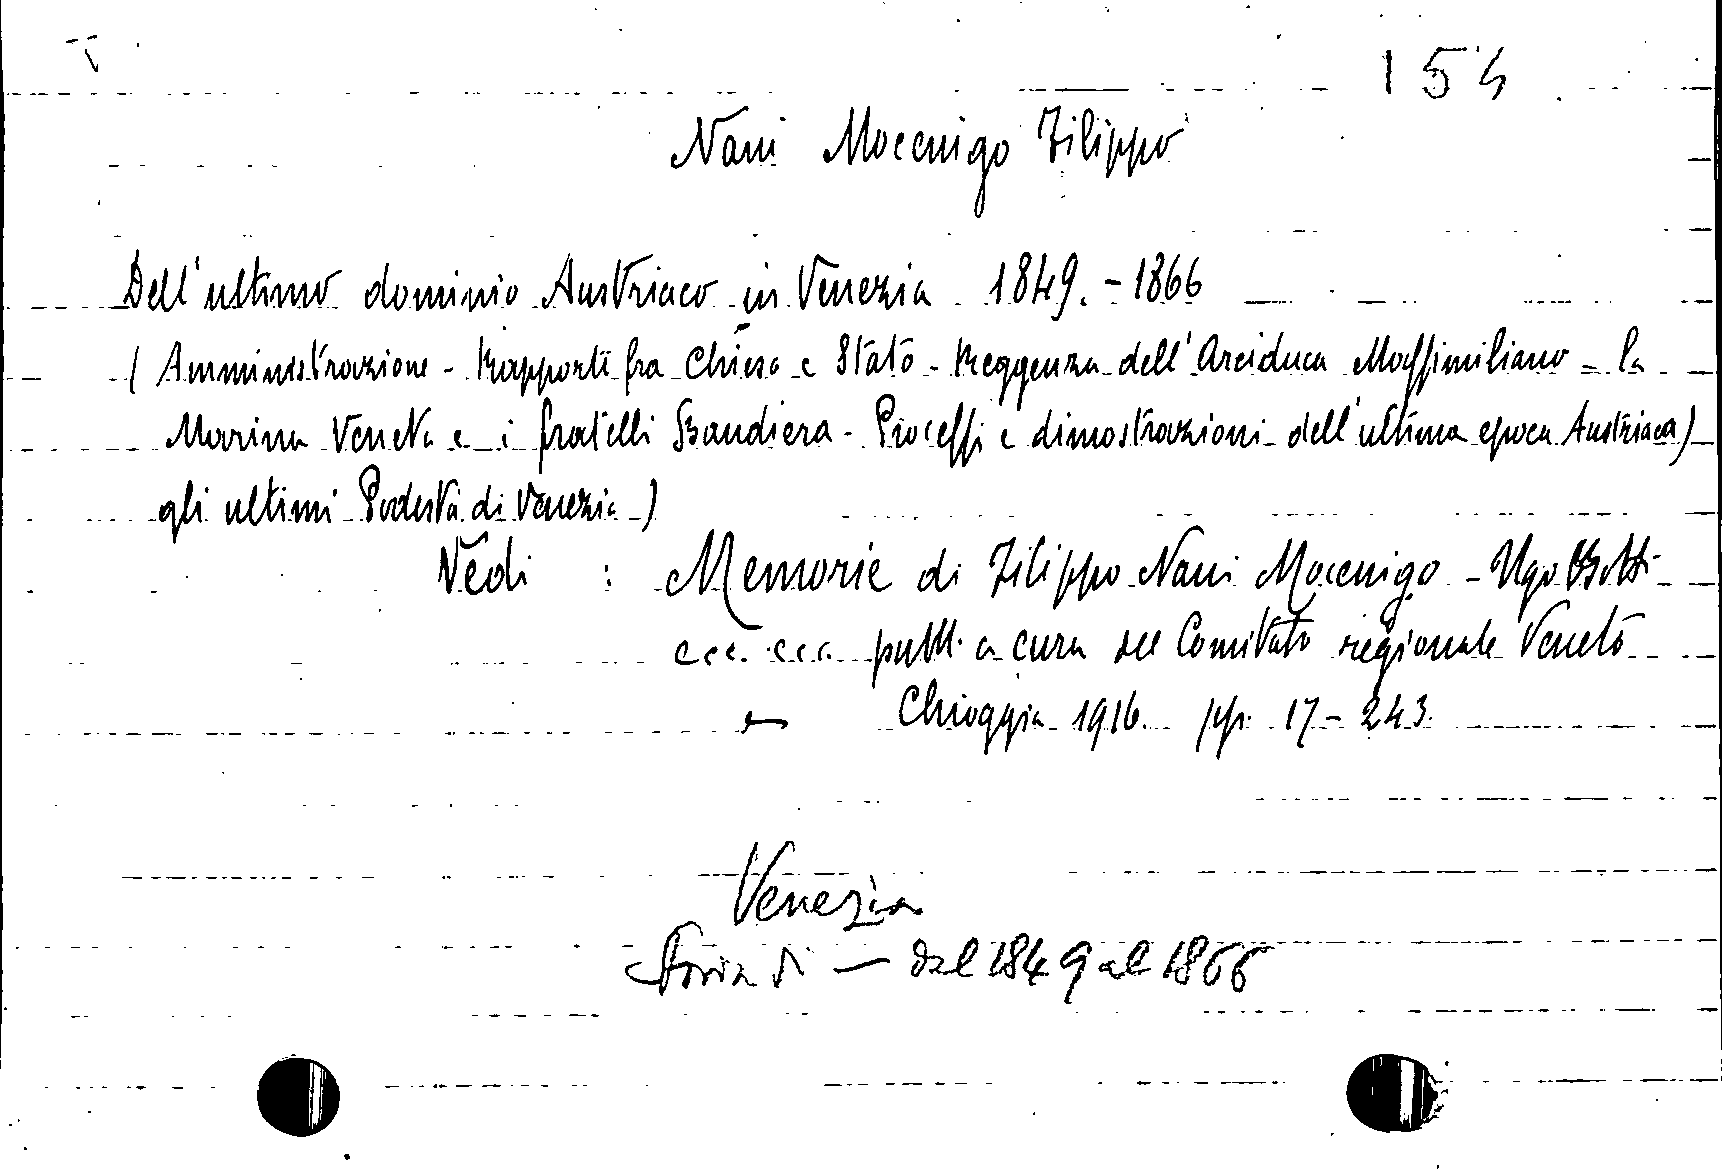 154
Nani Mocenigo Filippo
Dell'ultimo dominio Austriaco in Venezia 1849.-1866
( Amministrazione - Rapporti fra Chiesa e Stato - Reggenza dell'Arciduca Massimiliano - la
Marina Veneta e i fratelli Bandiera - Processi e dimostrazioni dell'ultima epoca Austriaca)
gli ultimi Podestà di Venezia -)
Vedi : Memorie di Filippo Nani Mocenigo - Ugo Botti -
ecc. ecc. pubbl. a cura del Comitato regionale Veneto
Chioggia 1916. pp. 17-243.
Venezia
Storia di — dal 1849 al 1866